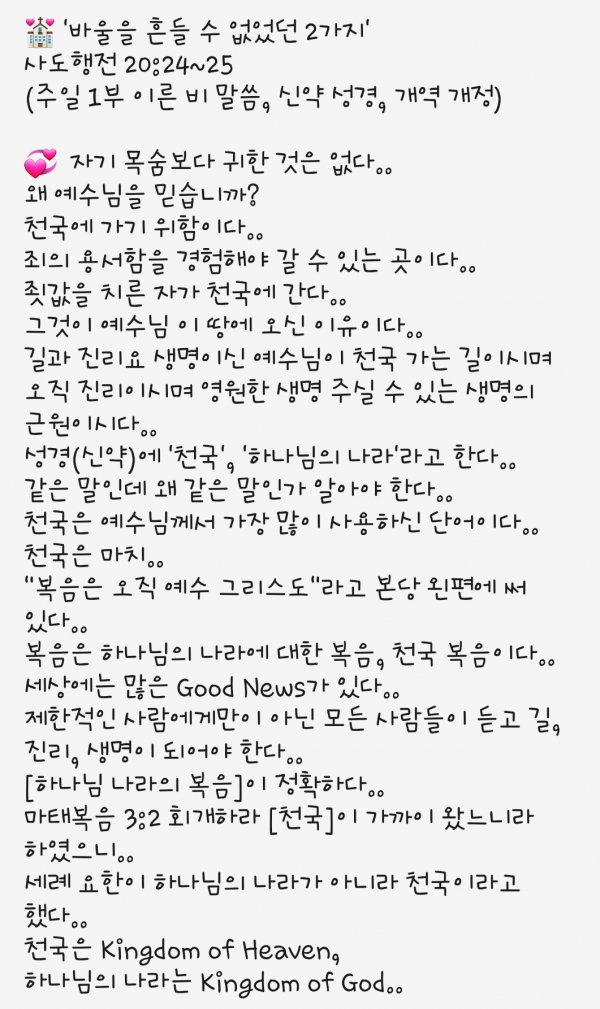 💒 '바울을 흔들 수 없었던 2가지'
사도행전 20:24~25
(주일 1부 이른 비 말씀, 신약 성경, 개역 개정)
💞 자기 목숨보다 귀한 것은 없다..
왜 예수님을 믿습니까?
천국에 가기 위함이다..
죄의 용서함을 경험해야 갈 수 있는 곳이다..
죗값을 치른 자가 천국에 간다..
그것이 예수님 이 땅에 오신 이유이다..
길과 진리요 생명이신 예수님이 천국 가는 길이시며
오직 진리이시며 영원한 생명 주실 수 있는 생명의
근원이시다..
성경(신약)에 '천국', '하나님의 나라'라고 한다..
같은 말인데 왜 같은 말인가 알아야 한다..
천국은 예수님께서 가장 많이 사용하신 단어이다..
천국은 마치..
"복음은 오직 예수 그리스도"라고 본당 왼편에 써
있다..
복음은 하나님의 나라에 대한 복음, 천국 복음이다..
세상에는 많은 Good News가 있다..
제한적인 사람에게만이 아닌 모든 사람들이 듣고 길,
진리, 생명이 되어야 한다..
[하나님 나라의 복음]이 정확하다..
마태복음 3:2 회개하라 [천국]이 가까이 왔느니라
하였으니..
세례 요한이 하나님의 나라가 아니라 천국이라고
했다..
천국은 Kingdom of Heaven,
하나님의 나라는 Kingdom of God..